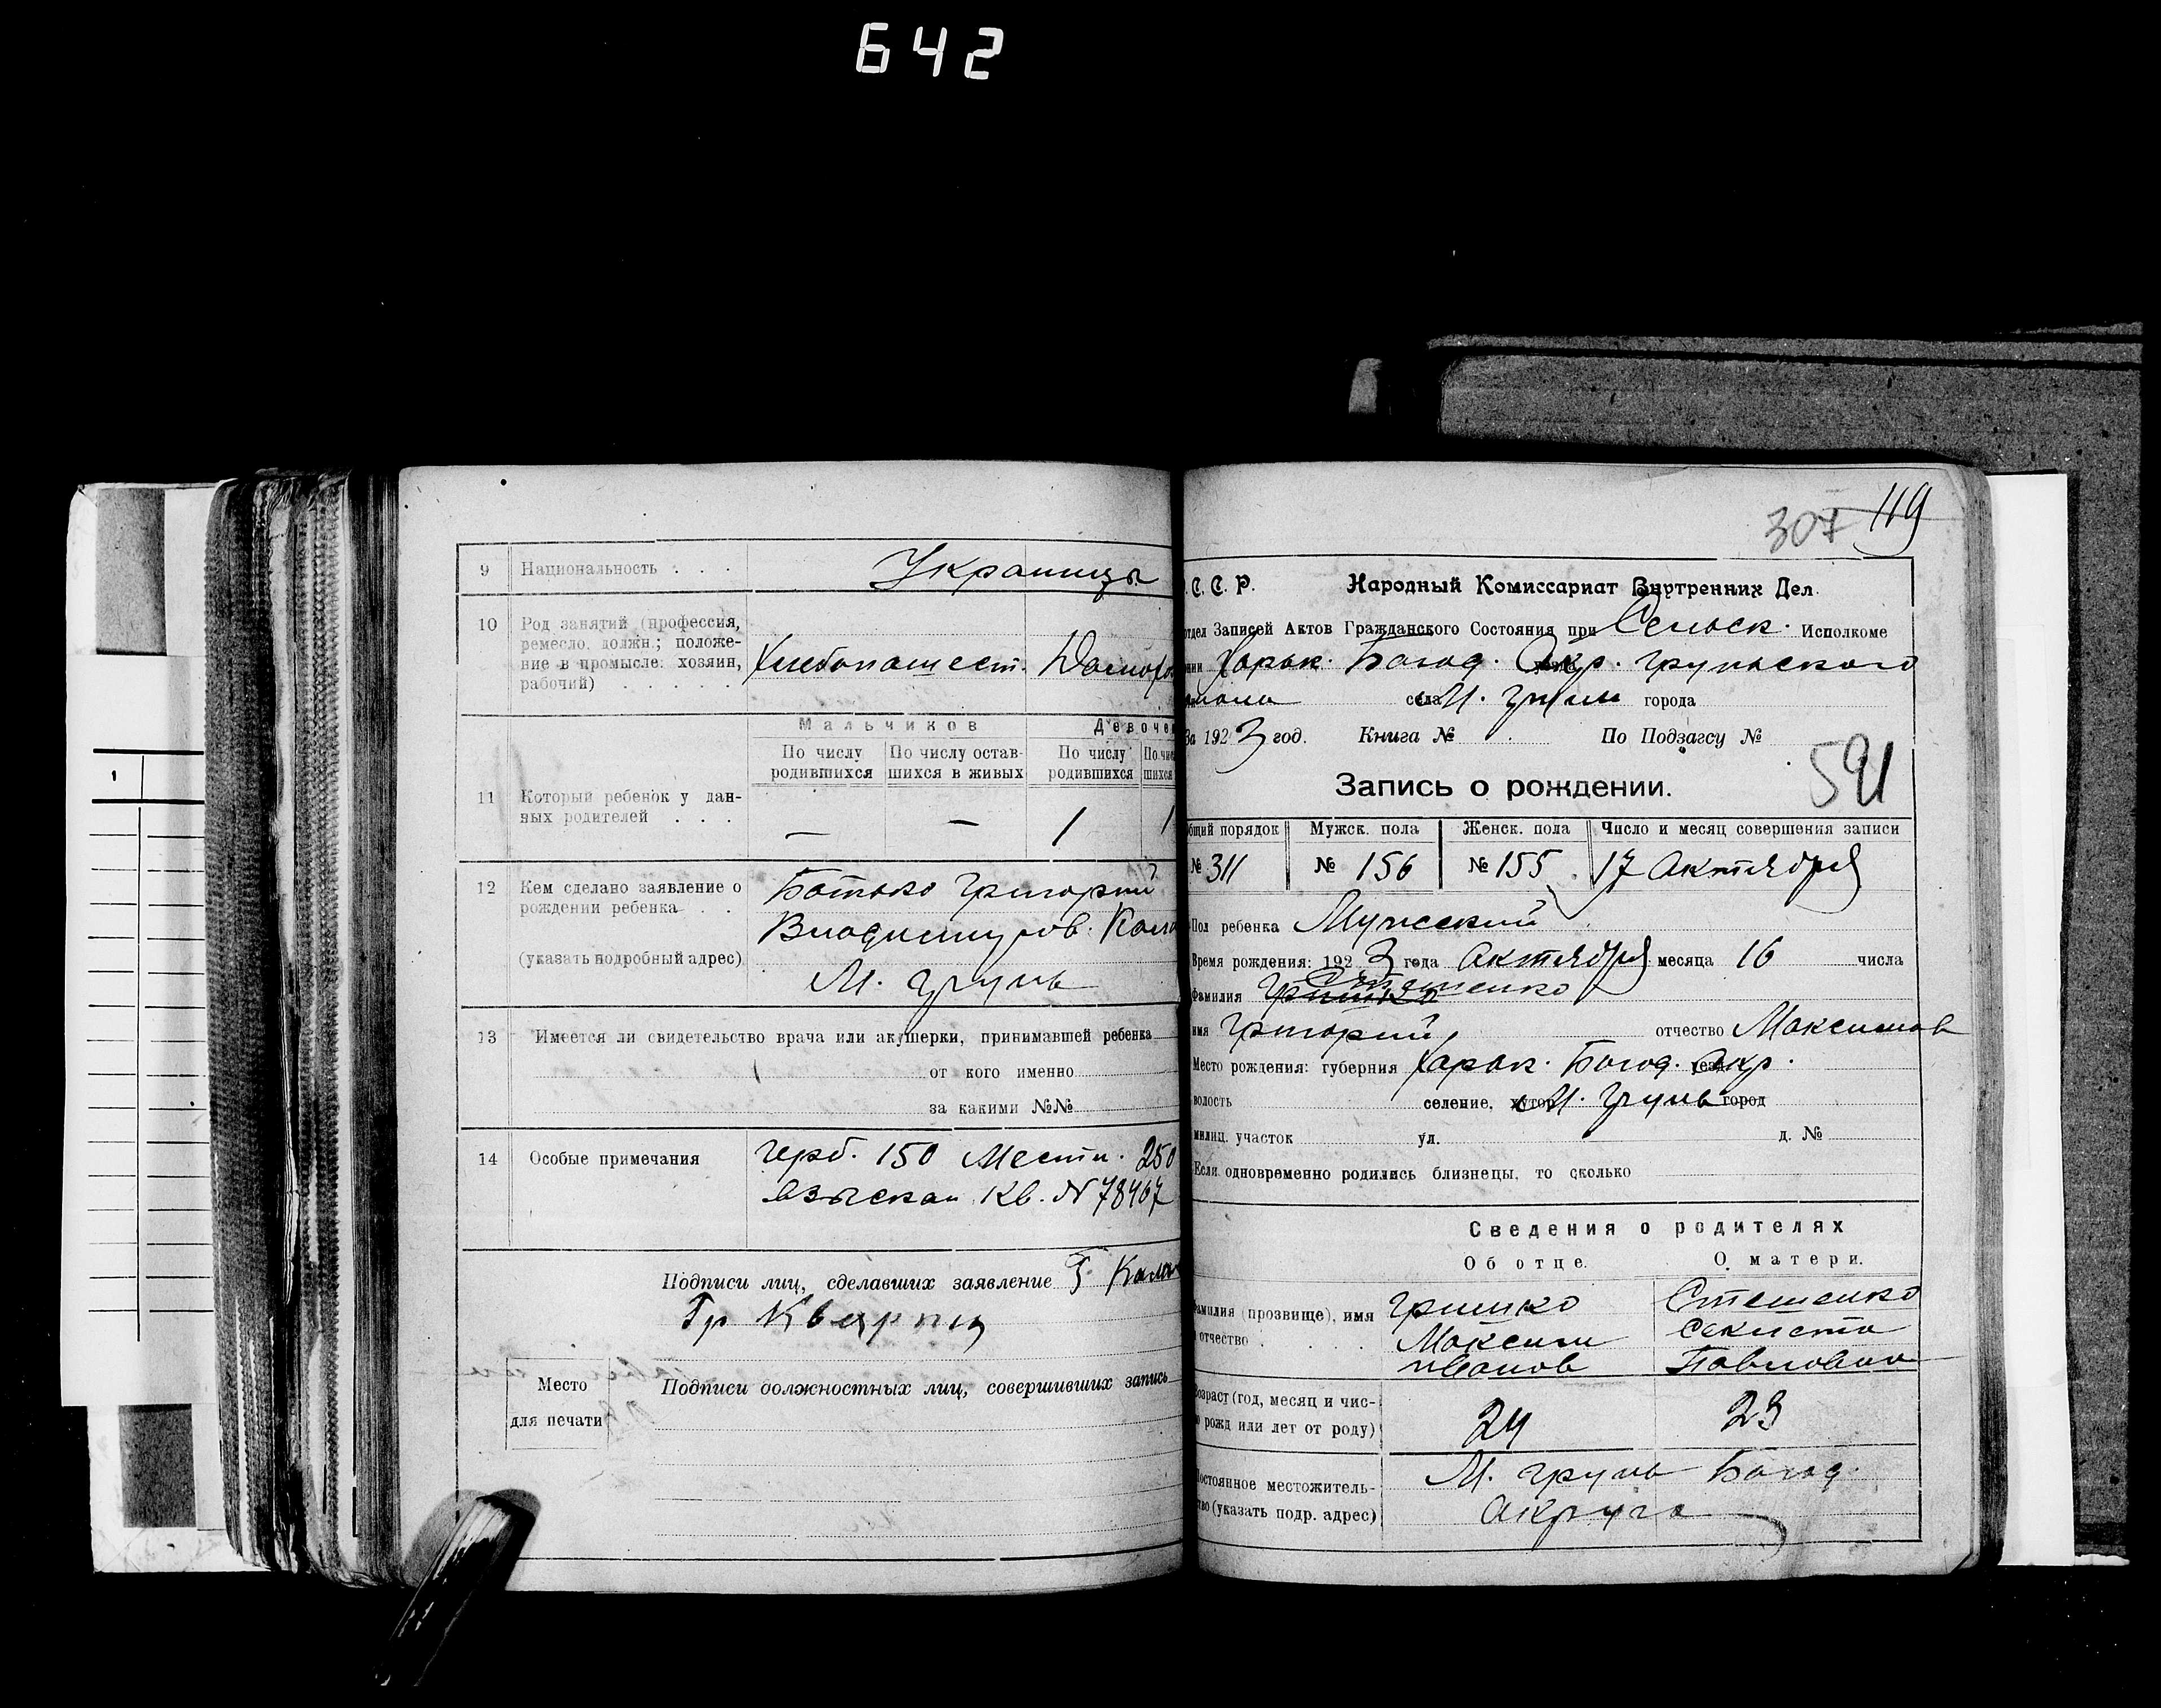 642
9 Национальность . . . Украинцы
10 Род занятий (профессия,
ремесло, должн.; положе-
ние в промысле: хозяин,
рабочий) . . . . . Хлебопашест.
Мальчиков Девоче
По числу По числу остав- По числу По чис
родившихся шихся в живых родившихся шихся
11 Который ребенок у дан-
ных родителей . . . — — 1 1
12 Кем сделано заявление о Батько Григорий
рождении ребенка . . Владимиров.
(указать подробный адрес)
М. Грунь
13 Имеется ли свидетельство врача или акушерки, принимавшей ребенка
от кого именно
за какими №№
14 Особые примечания Герб. 150 Местн. 250
взыскан Кв. N 78467
Подписи лиц, сделавших заявление
Гр
Место
для печати
Подписи должностных лиц, совершивших запись
307 119
С. С. Р. Народный Комиссариат Внутренних Дел.
отдел Записей Актов Гражданского Состояния при Сельск. Исполкоме
Харьк. Богод. Окр. Груньского
села М. Грунь города
За 1923 год. Книга № По Подзагсу №
591
Запись о рождении.
общий порядок Мужск. пола Женск. пола Число и месяц совершения записи
№ 311 № 156 № 155 17 Октября
Пол ребенка Мужеский
Время рождения: 1923 года Октября месяца 16 числа
Фамилия Гришко Стешенко
имя Григорий отчество Максимов
Место рождения: губерния Харьк. Богод. уезд Окр.
волость селение, хутор М. Грунь город
милиц. участок ул. д. №
Если одновременно родились близнецы, то сколько
Сведения о родителях
Об отце. О матери.
Фамилия (прозвище), имя Гришко Стешенко
и отчество . . . . Максим Секлета
Иванов Павловна
Возраст (год, месяц и чис-
ло рожд или лет от роду) 24 23
Постоянное местожитель- М. Грунь Богод.
ство (указать подр. адрес) Округа